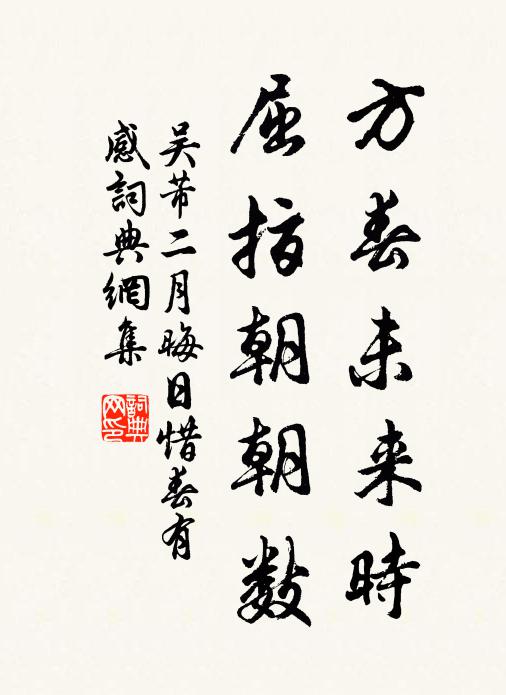 方春未来時
屈指朝朝數
吴芾二月晦日惜春有
感詞典網集
詞典
网印